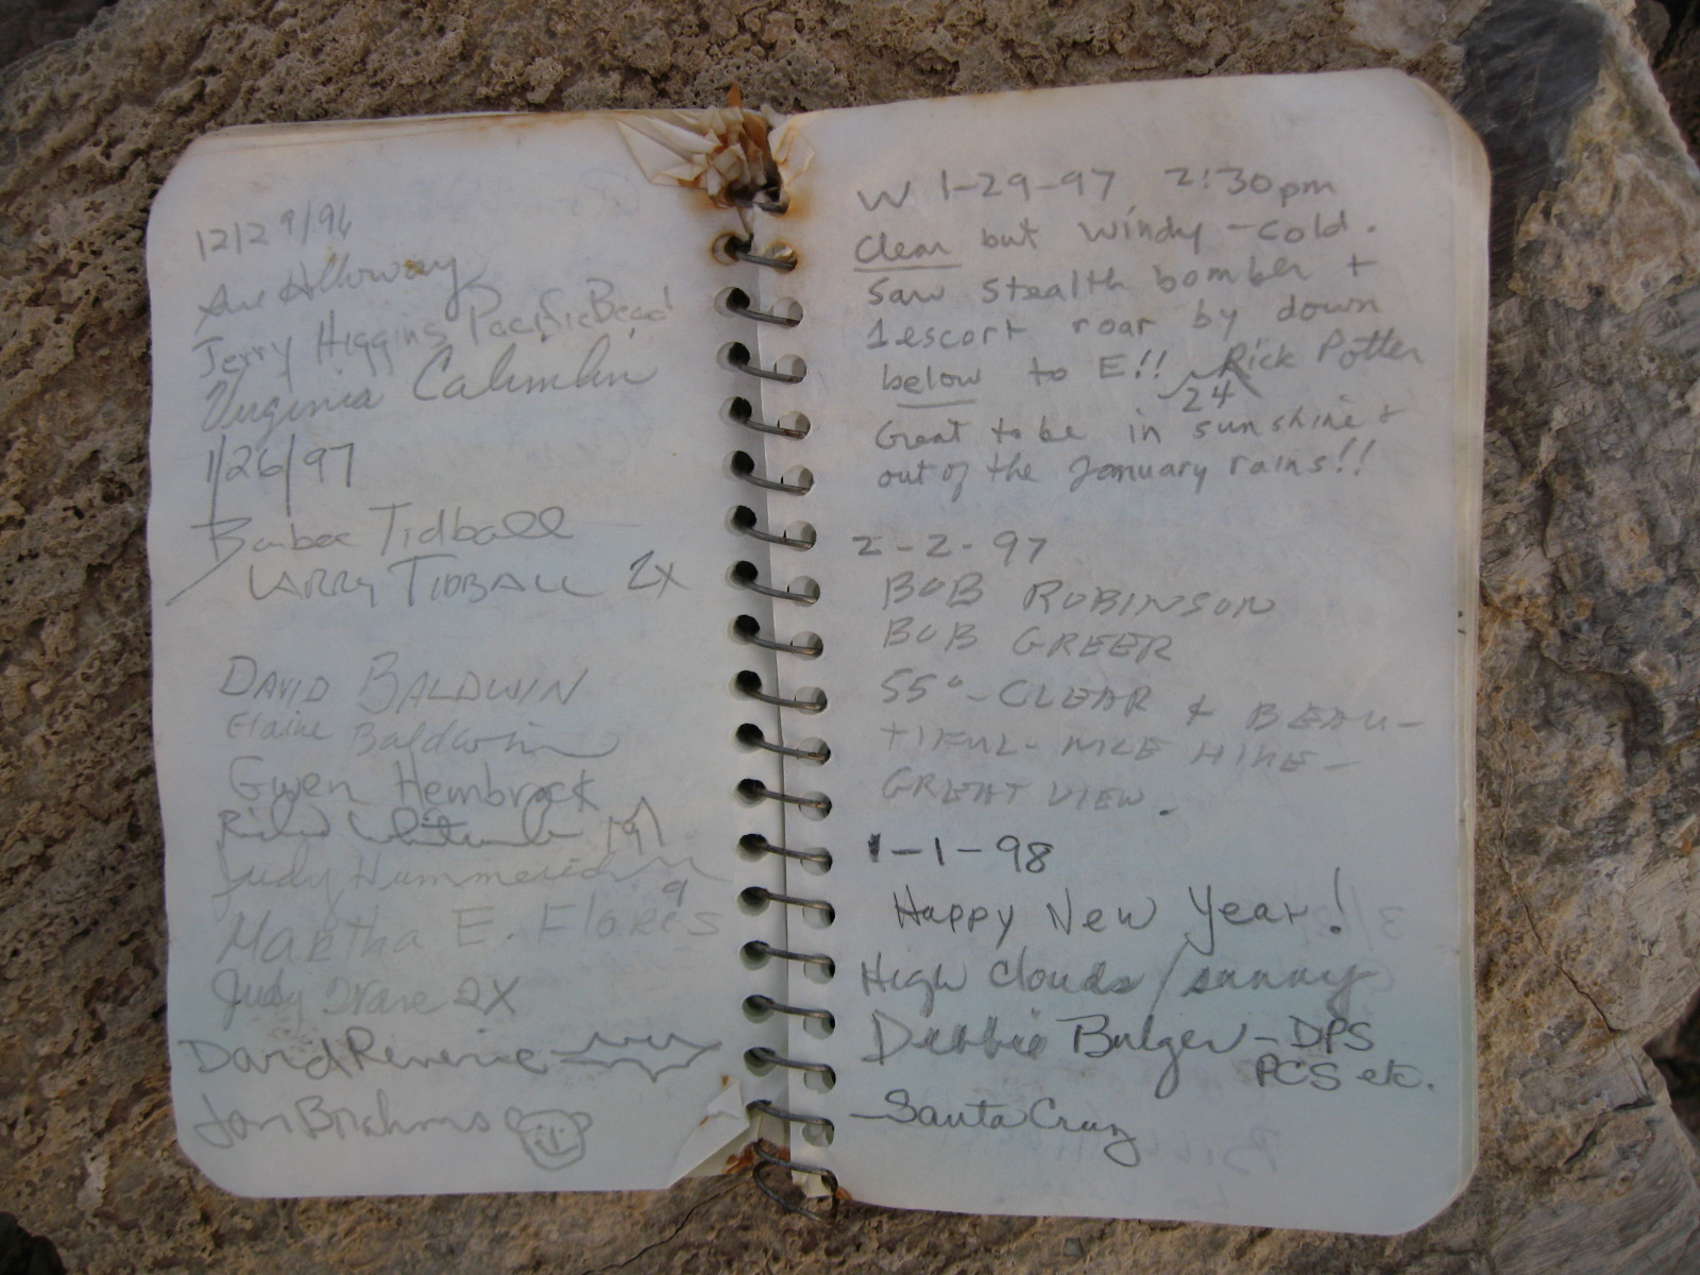 12/29/96
Sue Holloway
Jerry Higgins Pacific Beach
Virginia
1/26/97
Barbee Tidball
LARRY TIDBALL 2X
DAVID BALDWIN
Elaine Baldwin
Gwen Hembrock
Judy Hummerich
Martha E. Flores
Judy 2X
David
Jon Brahms
W 1-29-97 2:30pm
Clear but windy - cold.
Saw stealth bomber +
1 escort roar by down
below to E!! Rick Potter
24
Great to be in sunshine +
out of the January rains!!
2-2-97
BOB ROBINSON
BOB GREER
55° - CLEAR & BEAU-
TIFUL - NICE HIKE -
GREAT VIEW.
1-1-98
Happy New Year!
High clouds / sunny
Debbie Bulger - DPS
PCS etc.
- Santa Cruz